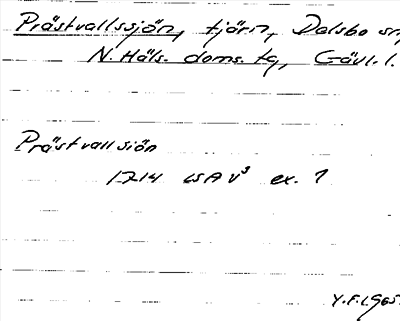 Prästvallssjön, tjärn, Delsbo sn,
N. Häls. doms. tg, Gävl. l.
Prästvallsiön
1714 LSA V³ ex. 1
Y.F. 1965.